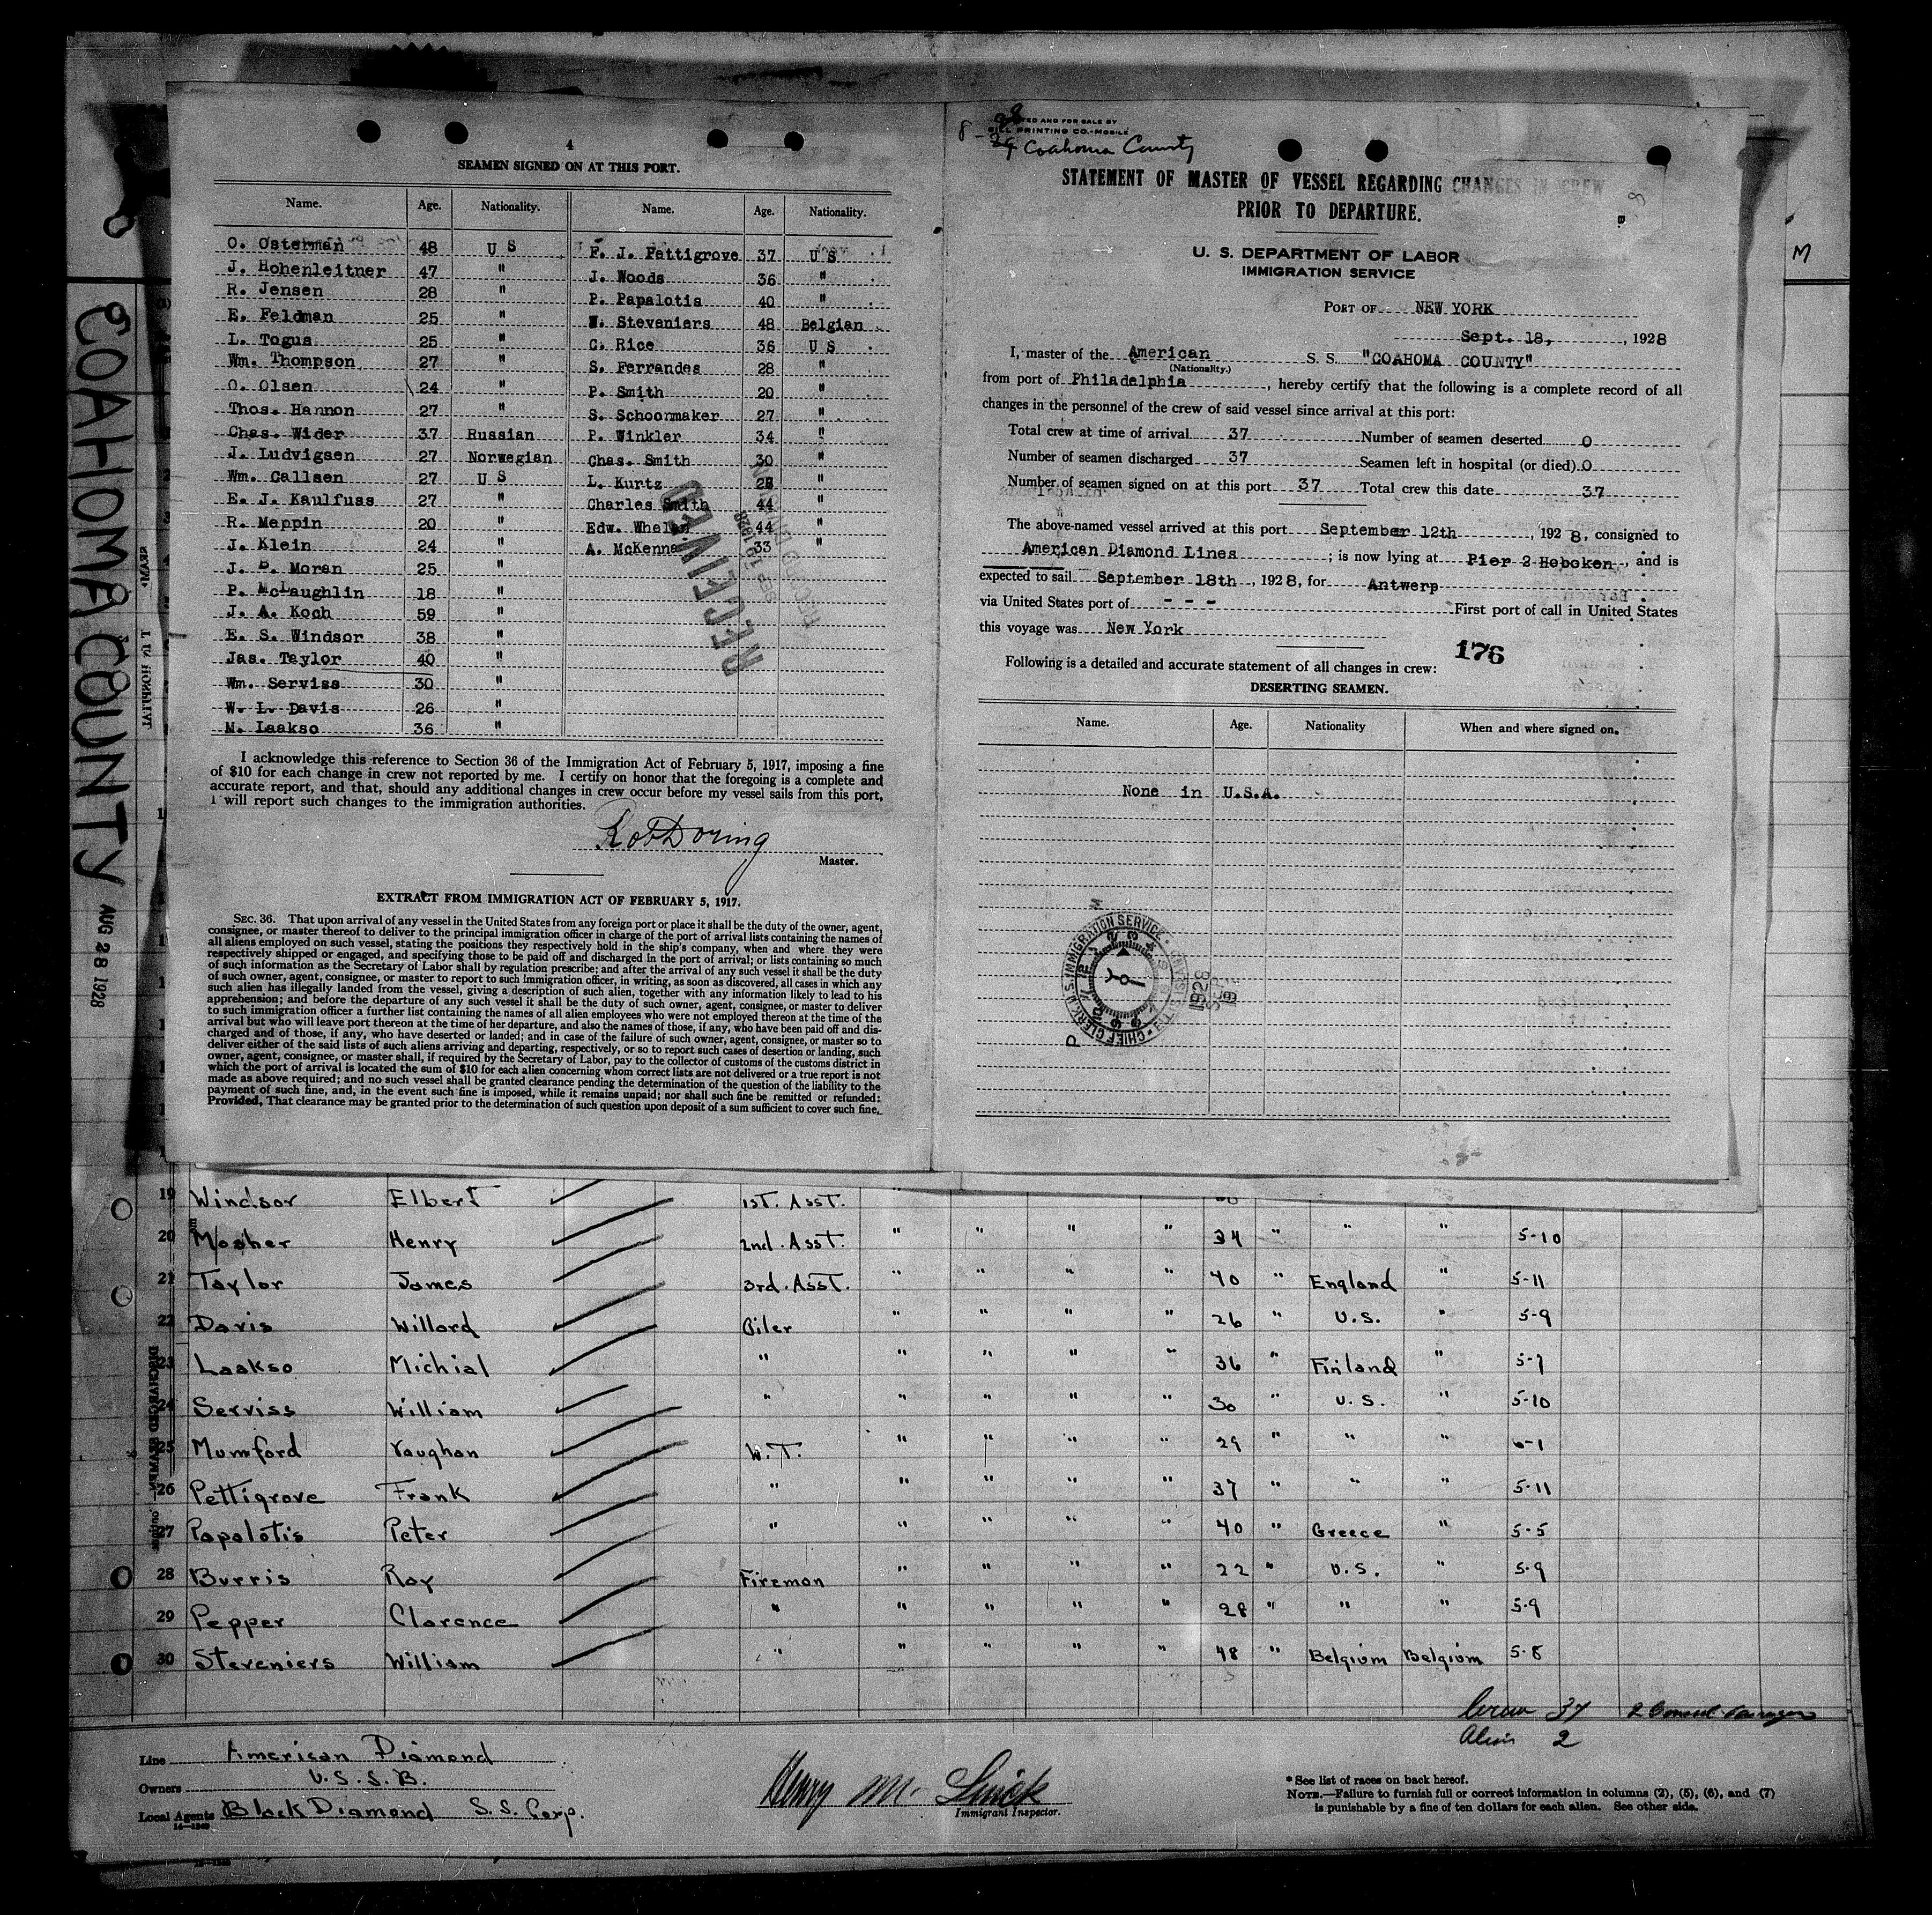 4
SEAMEN SIGNED ON AT THIS PORT.
Name. Age. Nationality. Name. Age. Nationality.
O. Osterman 48 U S F. J. Pettigrove 37 U S
J. Hohenleitner 47 " J. Woods 36 "
R. Jensen 28 " P. Papalotis 40 "
E. Feldman 25 " W. Steveniers 48 Belgian
L. Togus 25 " C. Rice 36 U S
Wm. Thompson 27 " S. Ferrandes 28 "
O. Olsen 24 " P. Smith 20 "
Thos. Hannon 27 " S. Schoonmaker 27 "
Chas. Wider 37 Russian P. Winkler 34 "
J. Ludvigsen 27 Norwegian Chas. Smith 30 "
Wm. Callsen 27 U S L. Kurtz 28 "
E. J. Kaulfuss 27 " Charles Smith 44 "
R. Meppin 20 " Edw. Whelan 44 "
J. Klein 24 " A. McKenna 33 "
J. P. Moran 25 "
P. McLaughlin 18 "
J. A. Koch 59 "
E. S. Windsor 38 "
Jas. Taylor 40 "
Wm. Serviss 30 "
W. L. Davis 26 "
M. Laakso 36 "
RECEIVED
SEP 18 1928
I acknowledge this reference to Section 36 of the Immigration Act of February 5, 1917, imposing a fine
of $10 for each change in crew not reported by me. I certify on honor that the foregoing is a complete and
accurate report, and that, should any additional changes in crew occur before my vessel sails from this port,
I will report such changes to the immigration authorities.
Rob Doring
Master.
EXTRACT FROM IMMIGRATION ACT OF FEBRUARY 5, 1917.
SEC. 36. That upon arrival of any vessel in the United States from any foreign port or place it shall be the duty of the owner, agent,
consignee, or master thereof to deliver to the principal immigration officer in charge of the port of arrival lists containing the names of
all aliens employed on such vessel, stating the positions they respectively hold in the ship's company, when and where they were
respectively shipped or engaged, and specifying those to be paid off and discharged in the port of arrival; or lists containing so much
of such information as the Secretary of Labor shall by regulation prescribe; and after the arrival of any such vessel it shall be the duty
of such owner, agent, consignee, or master to report to such immigration officer, in writing, as soon as discovered, all cases in which any
such alien has illegally landed from the vessel, giving a description of such alien, together with any information likely to lead to his
apprehension; and before the departure of any such vessel it shall be the duty of such owner, agent, consignee, or master to deliver
to such immigration officer a further list containing the names of all alien employees who were not employed thereon at the time of the
arrival but who will leave port thereon at the time of her departure, and also the names of those, if any, who have been paid off and dis-
charged and of those, if any, who have deserted or landed; and in case of the failure of such owner, agent, consignee, or master so to
deliver either of the said lists of such aliens arriving and departing, respectively, or so to report such cases of desertion or landing, such
owner, agent, consignee, or master shall, if required by the Secretary of Labor, pay to the collector of customs of the customs district in
which the port of arrival is located the sum of $10 for each alien concerning whom correct lists are not delivered or a true report is not
made as above required; and no such vessel shall be granted clearance pending the determination of the question of the liability to the
payment of such fine, and, in the event such fine is imposed, while it remains unpaid; nor shall such fine be remitted or refunded:
Provided, That clearance may be granted prior to the determination of such question upon deposit of a sum sufficient to cover such fine.
AND FOR SALE BY
PRINTING CO.-MOBILE
Coahoma County
STATEMENT OF MASTER OF VESSEL REGARDING CHANGES IN CREW
PRIOR TO DEPARTURE.
U. S. DEPARTMENT OF LABOR
IMMIGRATION SERVICE
PORT OF NEW YORK
Sept. 18, 1928
I, master of the American S. S. "COAHOMA COUNTY"
(Nationality.)
from port of Philadelphia, hereby certify that the following is a complete record of all
changes in the personnel of the crew of said vessel since arrival at this port:
Total crew at time of arrival 37 Number of seamen deserted 0
Number of seamen discharged 37 Seamen left in hospital (or died) 0
Number of seamen signed on at this port 37 Total crew this date 37
The above-named vessel arrived at this port September 12th, 1928, consigned to
American Diamond Lines; is now lying at Pier 2 Hoboken, and is
expected to sail September 18th, 1928, for Antwerp
via United States port of - - - First port of call in United States
this voyage was New York
176
Following is a detailed and accurate statement of all changes in crew:
DESERTING SEAMEN.
Name. Age. Nationality When and where signed on.
None in U.S.A.
CHIEF CLERK U.S. IMMIGRATION SERVICE
1928
COAHOMA COUNTY
AUG 28 1928
M
19 Windsor Elbert 1st. Asst.
20 Mosher Henry 2nd. Asst. " " " " 34 " " " 5-10
21 Taylor James 3rd. Asst. " " " " 40 " England " 5-11
22 Davis Willard Oiler " " " " 26 " U.S. " 5-9
23 Laakso Michial " " " " " 36 " Finland " 5-7
24 Serviss William " " " " " 30 " U.S. " 5-10
25 Mumford Vaughan W.T. " " " " 29 " " " 6-1
26 Pettigrove Frank " " " " " 37 " " " 5-11
27 Papalotis Peter " " " " " 40 " Greece " 5-5
28 Burris Roy Fireman " " " " 22 " U.S. " 5-9
29 Pepper Clarence " " " " " 28 " " " 5-9
30 Steveniers William " " " " " 48 " Belgium Belgium 5-8
Crew 37
Alien 2
Line American Diamond
Owners U.S.S.B.
Local Agents Black Diamond S.S. Corp.
14-1240
Immigrant Inspector.
* See list of races on back hereof.
NOTE.—Failure to furnish full or correct information in columns (2), (5), (6), and (7)
is punishable by a fine of ten dollars for each alien. See other side.